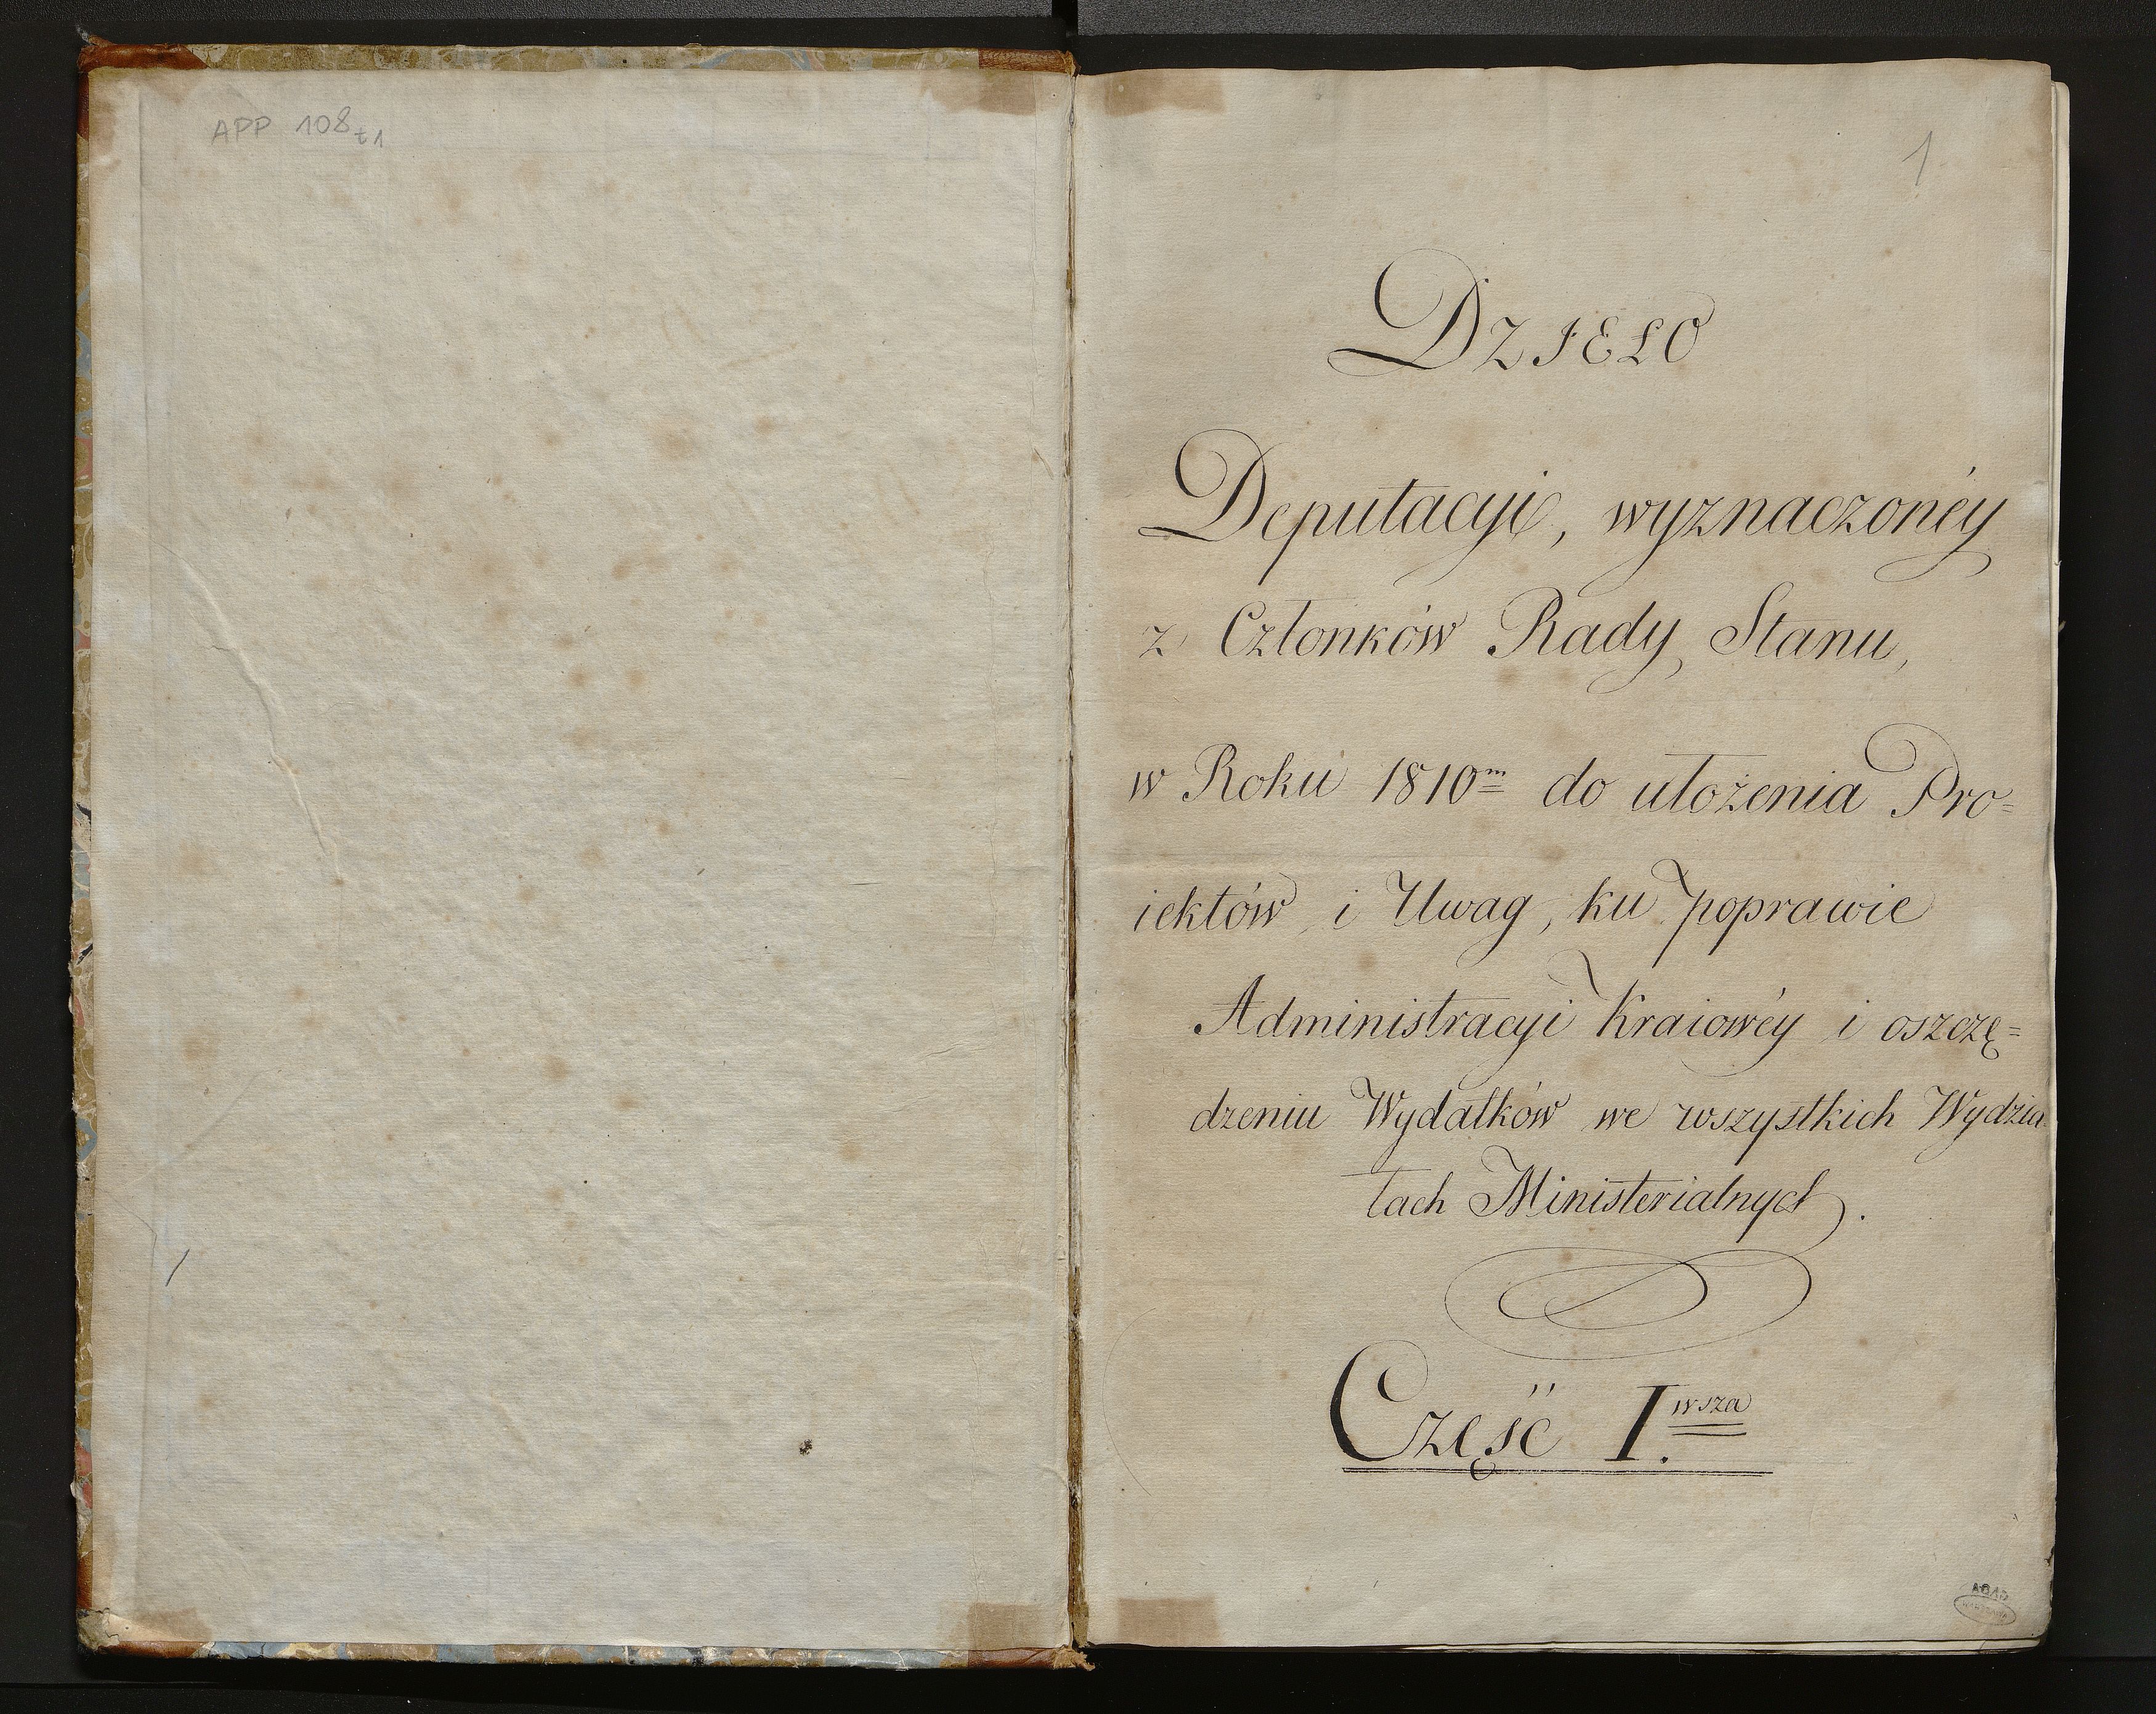 APP 108 t1
1
DZIEŁO
Deputacyi, wyznaczonéy
z Członków Rady Stanu,
w Roku 1810m do ułożenia Pro=
iektów i Uwag, ku poprawie
Administracyi Kraiowéy i oszczę=
dzeniu Wydatków we wszystkich Wydzia
łach Ministerialnych.
Część I.wsza
AGAD
WARSZAWA